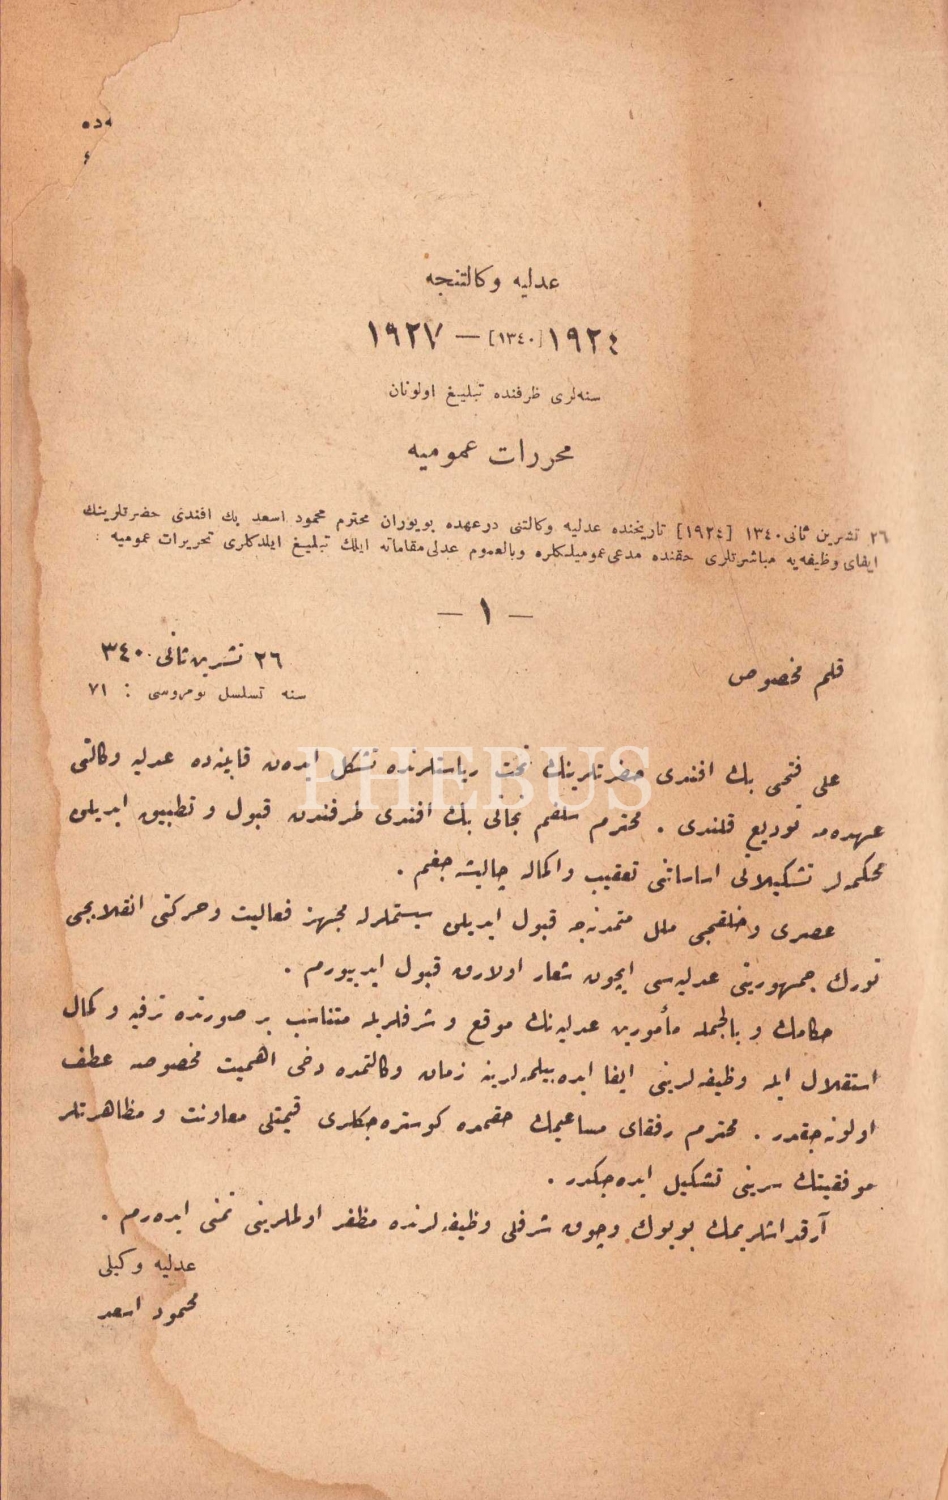 ـه‌ده
عدلیه وكالتنجه
١٩٢٤ [١٣٤٠] — ١٩٢٧
سنه‌لری ظرفنده تبلیغ اولونان
محررات عمومیه
٢٦ تشرین ثانی ١٣٤٠ [١٩٢٤] تاریخنده عدلیه وكالتنی درعهده بویوران محترم محمود اسعد بك افندی حضرتلرینك
ایفای وظیفه‌یه مباشرتلری حقنده مدعی‌عمومیلكلره وبالعموم عدلی‌مقاماته ایلك تبلیغ ایلدكلری تحریرات عمومیه :
— ١ —
قلم مخصوص
٢٦ تشرین ثانی ٣٤٠
سنه تسلسل نومروسی : ٧١
علی فتحی بك افندی حضرتلرینك تحت ریاستلرنده تشكل ایدەن قابینه‌ده عدلیه وكالتی
عهده‌مه تودیع قلندی . محترم سلفم نجاتی بك افندی طرفندن قبول و تطبیق ایدیلن
محكمه‌لر تشكیلاتی اساساتنی تعقیب واكماله چالیشه‌جغم .
عصری وخلقجی ملل متمدنه‌جه قبول ایدیلن سیستملرله مجهز فعالیت وحركتی انقلابجی
تورك جمهوریتی عدلیه‌سی ایچون شعار اولارق قبول ایدییورم .
حكامك و بالجمله مأمورین عدلیه‌نك موقع و شرفلریله متناسب بر صورتده ترفیه و كمال
استقلال ایله وظیفه‌لرینی ایفا ایده‌بیلمه‌لرینه زمان وكالتمده دخی اهمیت مخصوصه عطف
اولونه‌جقدر . محترم رفقای مساعیمك حقمده كوستره‌جكلری قیمتلی معاونت و مظاهرتلر
موفقیتك سرینی تشكیل ایده‌جكدر .
آرقداشلریمك بویوك وچوق شرفلی وظیفه‌لرنده مظفر اولملرینی تمنی ایده‌رم .
عدلیه وكیلی
محمود اسعد
PHEBUS